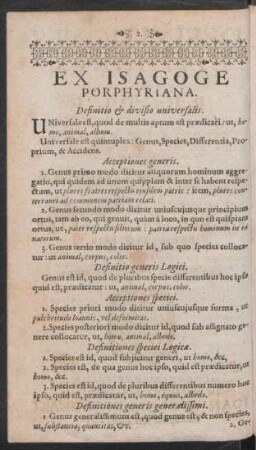 2.
EX ISAGOGE
PORPHYRIANA.
Definitio & divisio universalis.
UNiversale est, quod de multis aptum est prædicari: ut, ho-
mo, animal, album.
Universale est quintuplex: Genus, Species, Differentia, Pro-
prium, & Accidens.
Acceptiones generis.
1. Genus primo modo dicitur aliquorum hominum aggre-
gatio, qui quidem ad unum quippiam & inter se habent respe-
ctum, ut, plures fratres respectu ejusdem patris: item, plures conter-
ranei ad communem patriam relati.
2. Genus secundo modo dicitur uniuscujusque principium
ortus, tam ab eo, qui genuit, quàm à loco, in quo est quispiam
ortus, ut, pater respectu filiorum: patria respectu hominum in eâ
natorum.
3. Genus tertio modo dicitur id, sub quo species colloca-
tur: ut animal, corpus, color.
Definitio generis Logici.
Genus est id, quod de pluribus specie differentibus hoc ipso
quid est, prædicatur: ut, animal, corpus, color.
Acceptiones speciei.
1. Species priori modo dicitur uniuscujusque forma, ut
pulchritudo hominis, vel deformitas.
2. Species posteriori modo dicitur id, quod sub assignato ge-
nere collocatur, ut, homo, animal, albedo.
Definitiones speciei Logicæ.
1. Species est id, quod subjicitur generi, ut homo, &c.
2. Species est, de qua genus hoc ipso, quid est, prædicatur, ut
homo, &c.
3. Species est id, quod de pluribus differentibus numero hoc
ipso, quid est, prædicatur, ut, homo, equus, albedo.
Definitiones generis generalissimi.
1. Genus generalissimum est, quod genus est, & non species,
ut, substantia, quantitas, &c.
2. Ge-